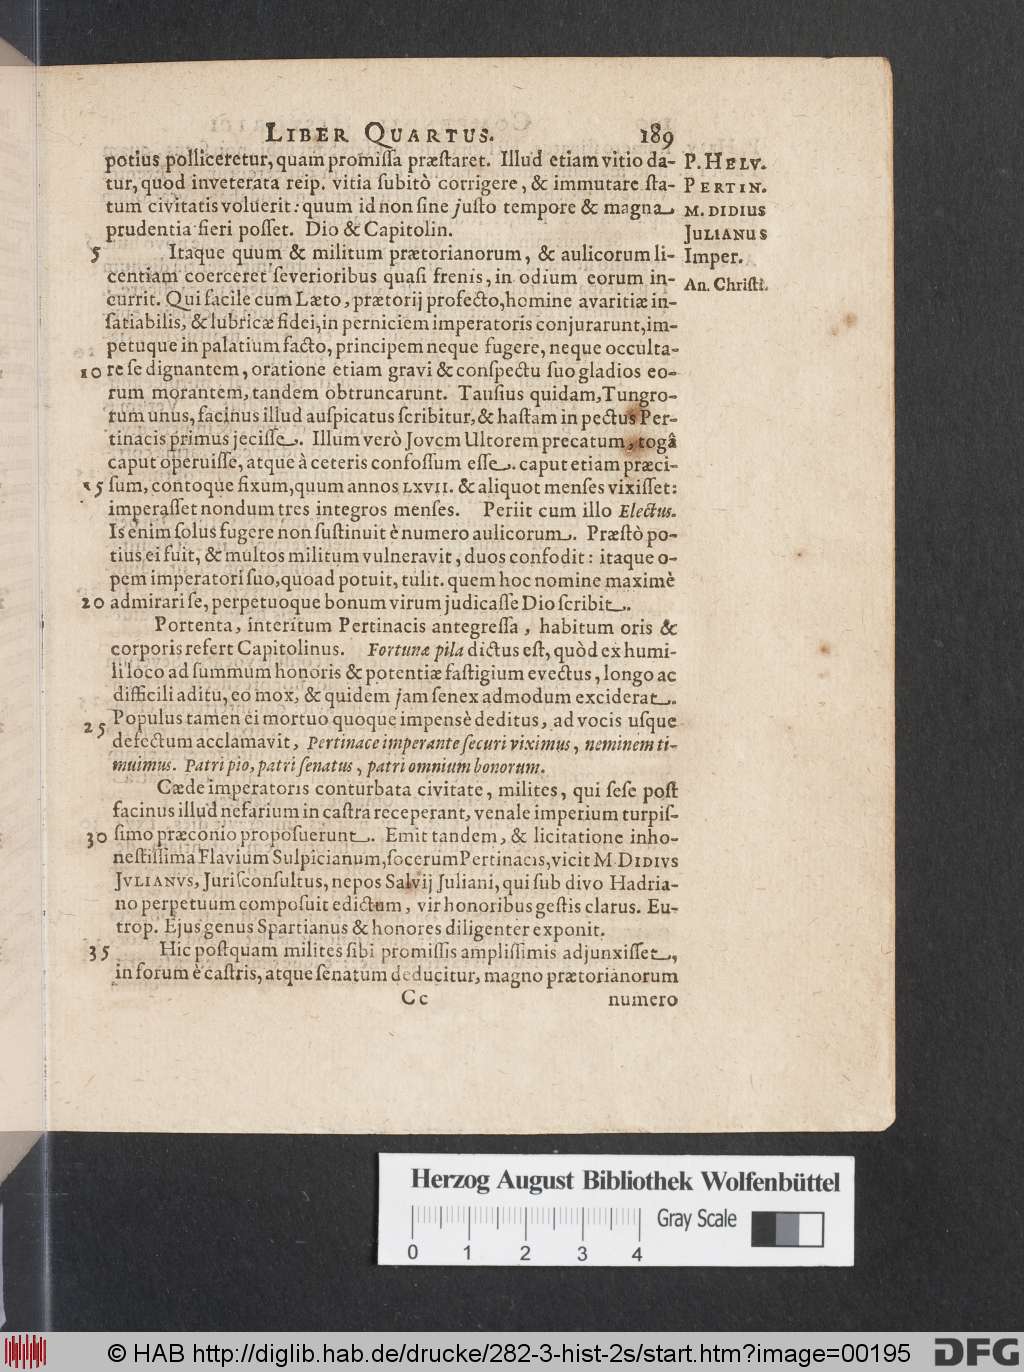 LIBER QUARTUS. 189
potius polliceretur, quam promiſſa præſtaret. Illud etiam vitio da-
tur, quod inveterata reip. vitia ſubitò corrigere, & immutare ſta-
tum civitatis voluerit: quum id non ſine juſto tempore & magna
prudentia fieri poſſet. Dio & Capitolin.
P. HELV.
PERTIN.
M. DIDIUS
JULIANUS
Imper.
An. Chriſti.
5 Itaque quum & militum prætorianorum, & aulicorum li-
centiam coerceret ſeverioribus quaſi frenis, in odium eorum in-
currit. Qui facile cum Læto, prætorij profecto, homine avaritiæ in-
ſatiabilis, & lubricæ fidei, in perniciem imperatoris conjurarunt, im-
petuque in palatium facto, principem neque fugere, neque occulta-
10 re ſe dignantem, oratione etiam gravi & conſpectu ſuo gladios eo-
rum morantem, tandem obtruncarunt. Tauſius quidam, Tungro-
rum unus, facinus illud auſpicatus ſcribitur, & haſtam in pectus Per-
tinacis primus jeciſſe. Illum verò Jovem Ultorem precatum, togâ
caput operuiſſe, atque à ceteris confoſſum eſſe. caput etiam præci-
15 ſum, contoque fixum, quum annos LXVII. & aliquot menſes vixiſſet:
imperaſſet nondum tres integros menſes. Periit cum illo Electus.
Is enim ſolus fugere non ſuſtinuit è numero aulicorum. Præſtò po-
tius ei fuit, & multos militum vulneravit, duos confodit: itaque o-
pem imperatori ſuo, quoad potuit, tulit. quem hoc nomine maximè
20 admirari ſe, perpetuoque bonum virum judicaſſe Dio ſcribit.
Portenta, interitum Pertinacis antegreſſa, habitum oris &
corporis refert Capitolinus. Fortunæ pila dictus eſt, quòd ex humi-
li loco ad ſummum honoris & potentiæ faſtigium evectus, longo ac
difficili aditu, eo mox, & quidem jam ſenex admodum exciderat.
25 Populus tamen ei mortuo quoque impensè deditus, ad vocis uſque
defectum acclamavit, Pertinace imperante ſecuri viximus, neminem ti-
muimus. Patri pio, patri ſenatus, patri omnium bonorum.
Cæde imperatoris conturbata civitate, milites, qui ſeſe poſt
facinus illud nefarium in caſtra receperant, venale imperium turpiſ-
30 ſimo præconio propoſuerunt. Emit tandem, & licitatione inho-
neſtiſſima Flavium Sulpicianum, ſocerum Pertinacis, vicit M DIDIVS
JVLIANVS, Juriſconſultus, nepos Salvij Juliani, qui ſub divo Hadria-
no perpetuum compoſuit edictum, vir honoribus geſtis clarus. Eu-
trop. Ejus genus Spartianus & honores diligenter exponit.
35 Hic poſtquam milites ſibi promiſſis ampliſſimis adjunxiſſet,
in forum è caſtris, atque ſenatum deducitur, magno prætorianorum
Cc numero
Herzog August Bibliothek Wolfenbüttel
Gray Scale
0 1 2 3 4
© HAB http://diglib.hab.de/drucke/282-3-hist-2s/start.htm?image=00195
DFG